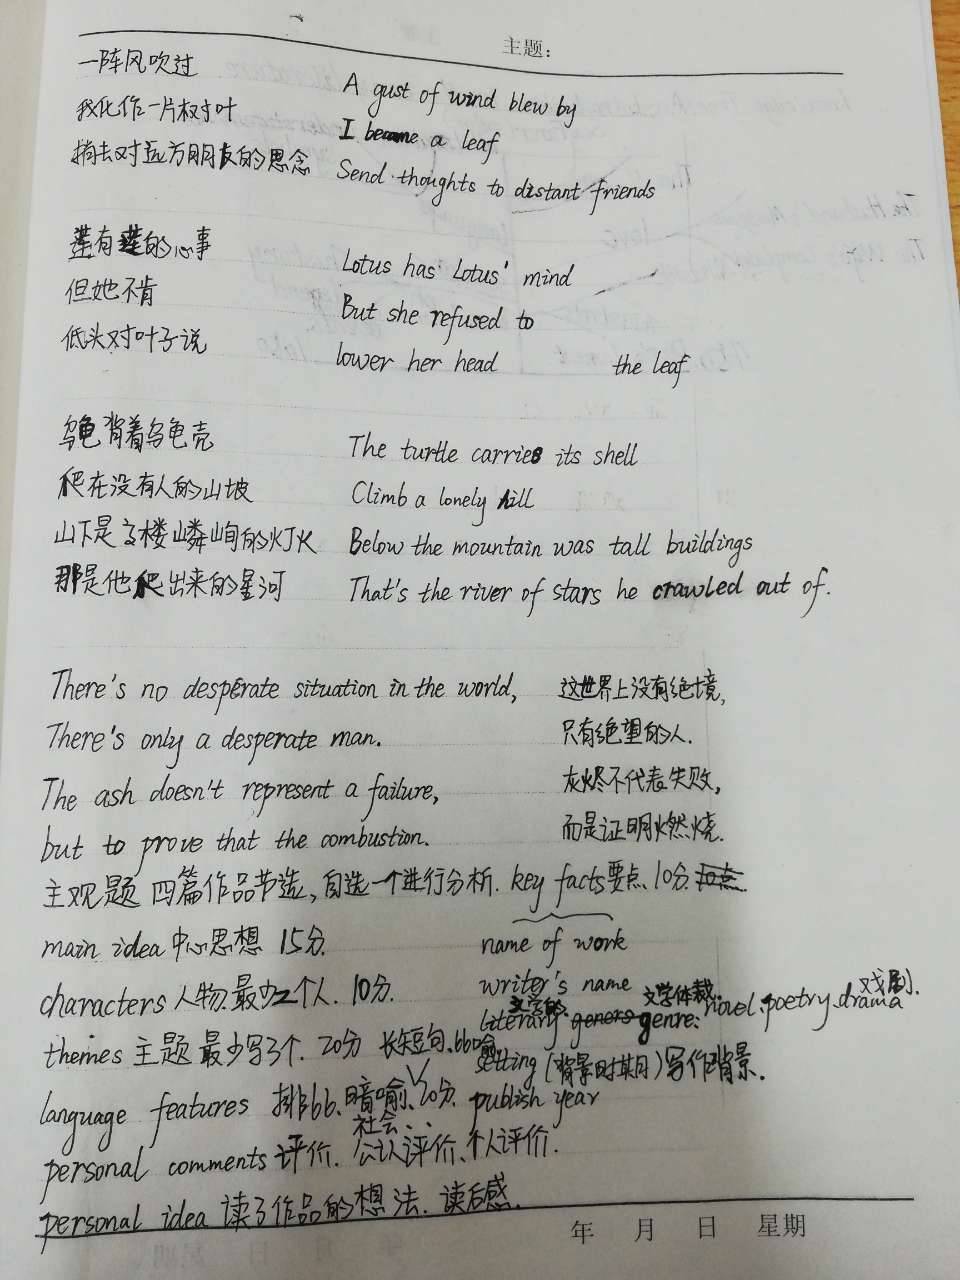 主题：
一阵风吹过
A gust of wind blew by
我化作一片树叶
I became a leaf
捎去对远方朋友的思念
Send thoughts to distant friends
莲有莲的心事
Lotus has Lotus' mind
但她不肯
But she refused to
低头对叶子说
lower her head the leaf
乌龟背着乌龟壳
The turtle carries its shell
爬在没有人的山坡
Climb a lonely hill
山下是高楼嶙峋的灯火
Below the mountain was tall buildings
那是他爬出来的星河
That's the river of stars he crawled out of.
There's no desperate situation in the world, 这世界上没有绝境,
There's only a desperate man. 只有绝望的人.
The ash doesn't represent a failure, 灰烬不代表失败,
but to prove that the combustion. 而是证明燃烧.
主观题 四篇作品节选,自选一个进行分析. key facts要点.10分.
main idea 中心思想 15分.
name of work
characters 人物.最少2个人. 10分.
writer's name
文学的 文学体裁 戏剧.
literary genre: novel.poetry.drama
themes 主题 最少写3个. 20分 长短句.bb喻
setting (背景时期)写作背景.
language features 排bb、暗喻、20分. publish year
社会...
personal comments 评价. 公认评价、个人评价.
personal idea 读了作品的想法. 读后感.
年 月 日 星期